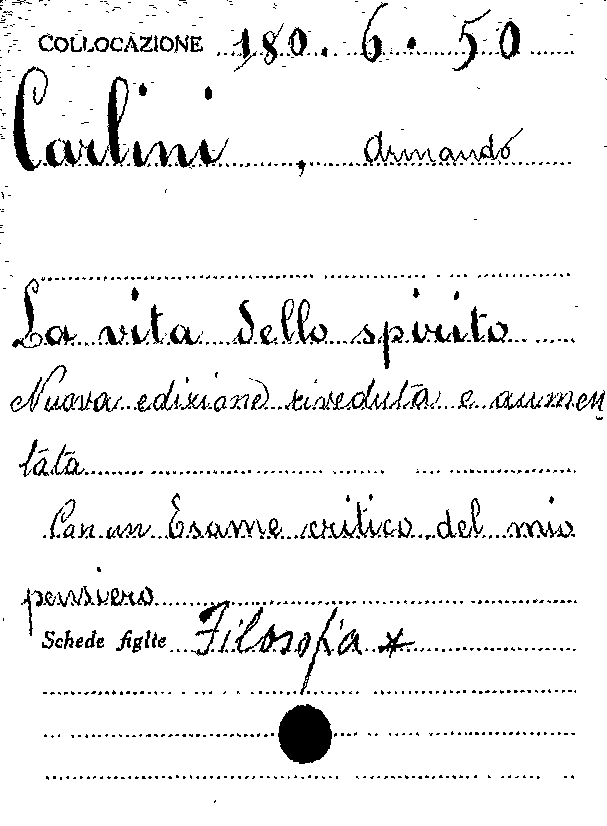 COLLOCAZIONE 180. 6. 50
Carlini, Armando
La vita dello spirito
Nuova edizione riveduta e aumen
tata
Con un Esame critico del mio
pensiero
Schede figlie Filosofia *